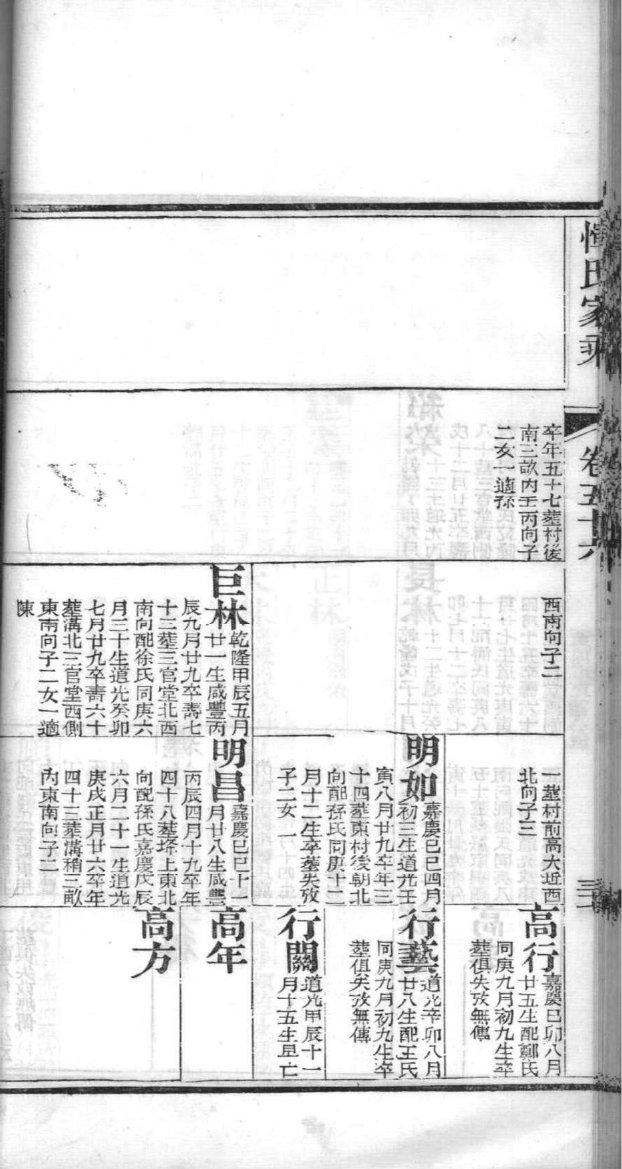 惲氏家乘
卷五十六
卒年五十七葬村後
南三畝內壬丙向子
二女一適孫
西南向子二
巨林
乾隆甲辰五月
廿一生咸豐丙
辰九月廿九卒壽七
十三葬三官堂北西
南向配徐氏同庚六
月三十生道光癸卯
七月廿九卒壽六十
葬溝北三官堂西側
東南向子二女一適
陳
一葬村前高大近西
北向子三
明如
嘉慶己巳四月
初三生道光壬
寅八月廿九卒年三
十四葬東村後朝北
向配孫氏同庚十二
月十二生卒葬失攷
子二女一
明昌
嘉慶己巳十一
月廿八生咸豐
丙辰四月十九卒年
四十八葬塚上東北
向配孫氏嘉慶戊辰
六月二十一生道光
庚戌正月廿六卒年
四十三葬溝稍三畝
內東南向子二
高行
嘉慶己卯八月
廿五生配鄭氏
同庚九月初九生卒
葬俱失攷無傳
行藝
道光辛卯八月
廿八生配王氏
同庚九月初九生卒
葬俱失攷無傳
行關
道光甲辰十一
月十五生早亡
高年
高方